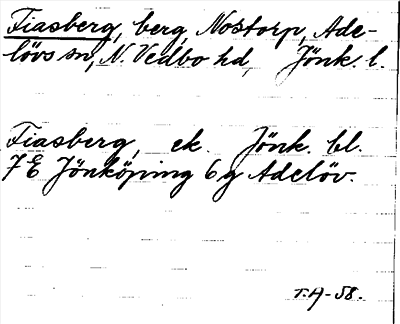 Fiasberg, berg, Nostorp, Ade-
lövs sn, N. Vedbo hd, Jönk. l.
Fiasberg, ek. Jönk. bl.
7 E Jönköping 6 g Adelöv.
T.A-58.